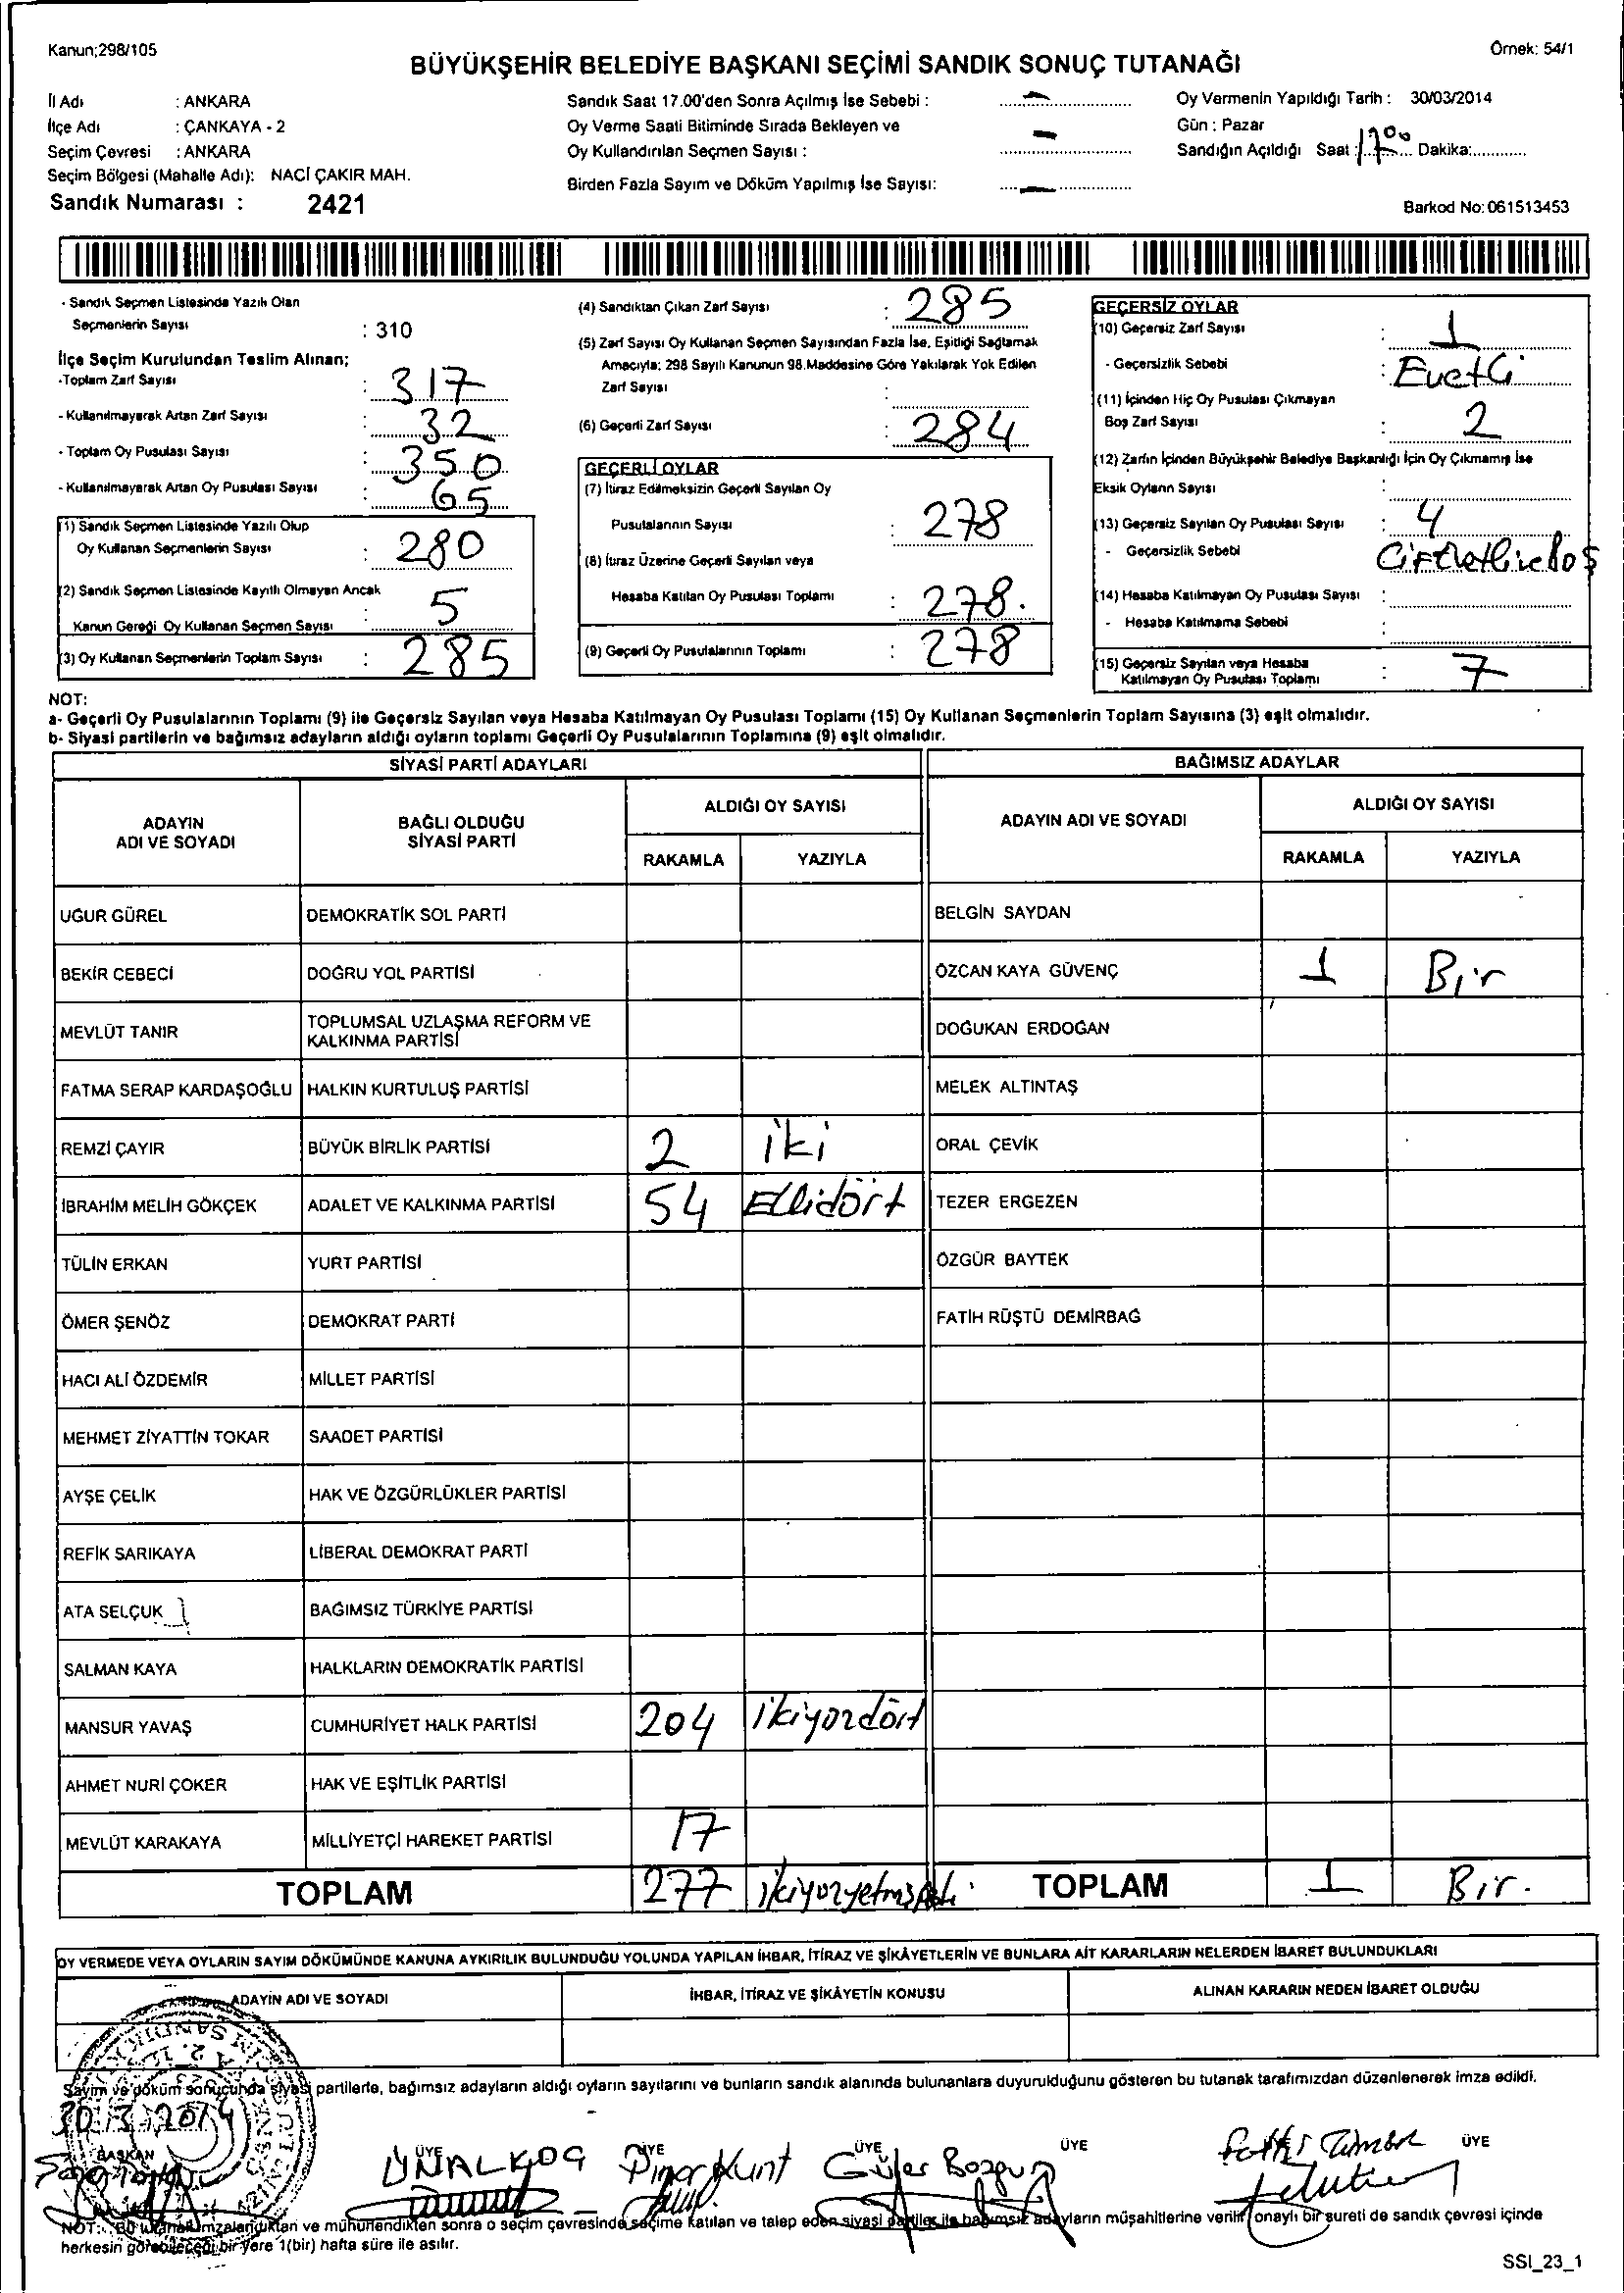 Kanun;298/105
Örnek: 54/1
BÜYÜKŞEHİR BELEDİYE BAŞKANI SEÇİMİ SANDIK SONUÇ TUTANAĞI
İl Adı : ANKARA
İlçe Adı : ÇANKAYA - 2
Seçim Çevresi : ANKARA
Seçim Bölgesi (Mahalle Adı): NACİ ÇAKIR MAH.
Sandık Numarası : 2421
Sandık Saat 17.00'den Sonra Açılmış İse Sebebi : -
Oy Verme Saati Bitiminde Sırada Bekleyen ve
Oy Kullandırılan Seçmen Sayısı : -
Birden Fazla Sayım ve Döküm Yapılmış İse Sayısı: -
Oy Vermenin Yapıldığı Tarih : 30/03/2014
Gün : Pazar
Sandığın Açıldığı Saat : 17.00 Dakika:............
Barkod No: 061513453
- Sandık Seçmen Listesinde Yazılı Olan
Seçmenlerin Sayısı : 310
İlçe Seçim Kurulundan Teslim Alınan;
-Toplam Zarf Sayısı : 317
- Kullanılmayarak Artan Zarf Sayısı : 32
- Toplam Oy Pusulası Sayısı : 350
- Kullanılmayarak Artan Oy Pusulası Sayısı : 65
(1) Sandık Seçmen Listesinde Yazılı Olup
Oy Kullanan Seçmenlerin Sayısı : 280
(2) Sandık Seçmen Listesinde Kayıtlı Olmayan Ancak
Kanun Gereği Oy Kullanan Seçmen Sayısı : 5
(3) Oy Kullanan Seçmenlerin Toplam Sayısı : 285
(4) Sandıktan Çıkan Zarf Sayısı : 285
(5) Zarf Sayısı Oy Kullanan Seçmen Sayısından Fazla İse, Eşitliği Sağlamak
Amacıyla; 298 Sayılı Kanunun 98.Maddesine Göre Yakılarak Yok Edilen
Zarf Sayısı :
(6) Geçerli Zarf Sayısı : 284
GEÇERLİ OYLAR
(7) İtiraz Edilmeksizin Geçerli Sayılan Oy
Pusulalarının Sayısı : 278
(8) İtiraz Üzerine Geçerli Sayılan veya
Hesaba Katılan Oy Pusulası Toplamı : 278.
(9) Geçerli Oy Pusulalarının Toplamı : 278
GEÇERSİZ OYLAR
(10) Geçersiz Zarf Sayısı : 1
- Geçersizlik Sebebi :
(11) İçinden Hiç Oy Pusulası Çıkmayan
Boş Zarf Sayısı : 2
(12) Zarfın İçinden Büyükşehir Belediye Başkanlığı İçin Oy Çıkmamış İse
Eksik Oyların Sayısı :
(13) Geçersiz Sayılan Oy Pusulası Sayısı : 4
- Geçersizlik Sebebi
(14) Hesaba Katılmayan Oy Pusulası Sayısı :
- Hesaba Katılmama Sebebi :
(15) Geçersiz Sayılan veya Hesaba
Katılmayan Oy Pusulası Toplamı : 7
NOT:
a- Geçerli Oy Pusulalarının Toplamı (9) ile Geçersiz Sayılan veya Hesaba Katılmayan Oy Pusulası Toplamı (15) Oy Kullanan Seçmenlerin Toplam Sayısına (3) eşit olmalıdır.
b- Siyasi partilerin ve bağımsız adayların aldığı oyların toplamı Geçerli Oy Pusulalarının Toplamına (9) eşit olmalıdır.
SİYASİ PARTİ ADAYLARI
BAĞIMSIZ ADAYLAR
ADAYIN ADI VE SOYADI
BAĞLI OLDUĞU SİYASİ PARTİ
ALDIĞI OY SAYISI
RAKAMLA YAZIYLA
ADAYIN ADI VE SOYADI
ALDIĞI OY SAYISI
RAKAMLA YAZIYLA
UĞUR GÜREL DEMOKRATİK SOL PARTİ BELGİN SAYDAN
BEKİR CEBECİ DOĞRU YOL PARTİSİ ÖZCAN KAYA GÜVENÇ 1 Bir
MEVLÜT TANIR TOPLUMSAL UZLAŞMA REFORM VE KALKINMA PARTİSİ DOĞUKAN ERDOĞAN
FATMA SERAP KARDAŞOĞLU HALKIN KURTULUŞ PARTİSİ MELEK ALTINTAŞ
REMZİ ÇAYIR BÜYÜK BİRLİK PARTİSİ 2 iki ORAL ÇEVİK
İBRAHİM MELİH GÖKÇEK ADALET VE KALKINMA PARTİSİ 54 Ellidört TEZER ERGEZEN
TÜLİN ERKAN YURT PARTİSİ ÖZGÜR BAYTEK
ÖMER ŞENÖZ DEMOKRAT PARTİ FATİH RÜŞTÜ DEMİRBAĞ
HACI ALİ ÖZDEMİR MİLLET PARTİSİ
MEHMET ZİYATTİN TOKAR SAADET PARTİSİ
AYŞE ÇELİK HAK VE ÖZGÜRLÜKLER PARTİSİ
REFİK SARIKAYA LİBERAL DEMOKRAT PARTİ
ATA SELÇUK BAĞIMSIZ TÜRKİYE PARTİSİ
SALMAN KAYA HALKLARIN DEMOKRATİK PARTİSİ
MANSUR YAVAŞ CUMHURİYET HALK PARTİSİ 204 ikiyüzdört
AHMET NURİ ÇOKER HAK VE EŞİTLİK PARTİSİ
MEVLÜT KARAKAYA MİLLİYETÇİ HAREKET PARTİSİ 17
TOPLAM 277 TOPLAM 1 Bir.
OY VERMEDE VEYA OYLARIN SAYIM DÖKÜMÜNDE KANUNA AYKIRILIK BULUNDUĞU YOLUNDA YAPILAN İHBAR, İTİRAZ VE ŞİKÂYETLERİN VE BUNLARA AİT KARARLARIN NELERDEN İBARET BULUNDUKLARI
ADAYIN ADI VE SOYADI İHBAR, İTİRAZ VE ŞİKÂYETİN KONUSU ALINAN KARARIN NEDEN İBARET OLDUĞU
Sayım ve döküm sonucunda siyasi partilerle, bağımsız adayların aldığı oyların sayılarını ve bunların sandık alanında bulunanlara duyurulduğunu gösteren bu tutanak tarafımızdan düzenlenerek imza edildi.
30.3.2014
BAŞKAN ÜYE ÜYE ÜYE ÜYE ÜYE
ÜNAL KOÇ Pınar Kunt Güler Bozgun
NOT: Bu tutanak imzalandıktan ve mühürlendikten sonra o seçim çevresinde seçime katılan ve talep eden siyasi partiler ile bağımsız adayların müşahitlerine verilir, onaylı bir sureti de sandık çevresi içinde
herkesin görebileceği bir yere 1(bir) hafta süre ile asılır.
SSI_23_1